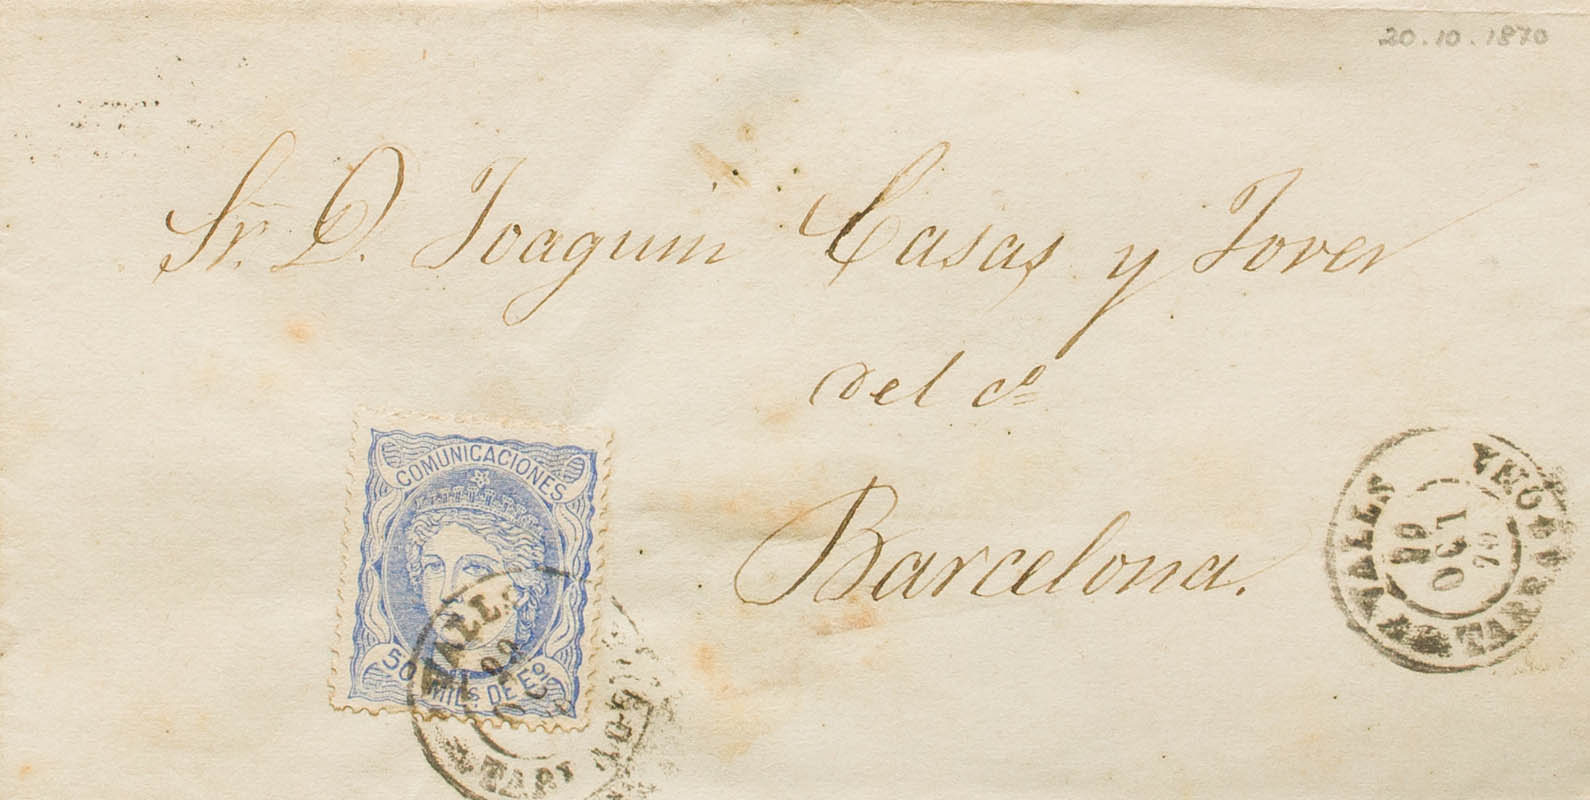 20.10.1870
Sr. D. Joaquin Casas y Jover
del cº
Barcelona.
COMUNICACIONES
50 MILS DE Eº
VALLS
OCT
TARR
VALLS
OCT
70
TARRAGONA